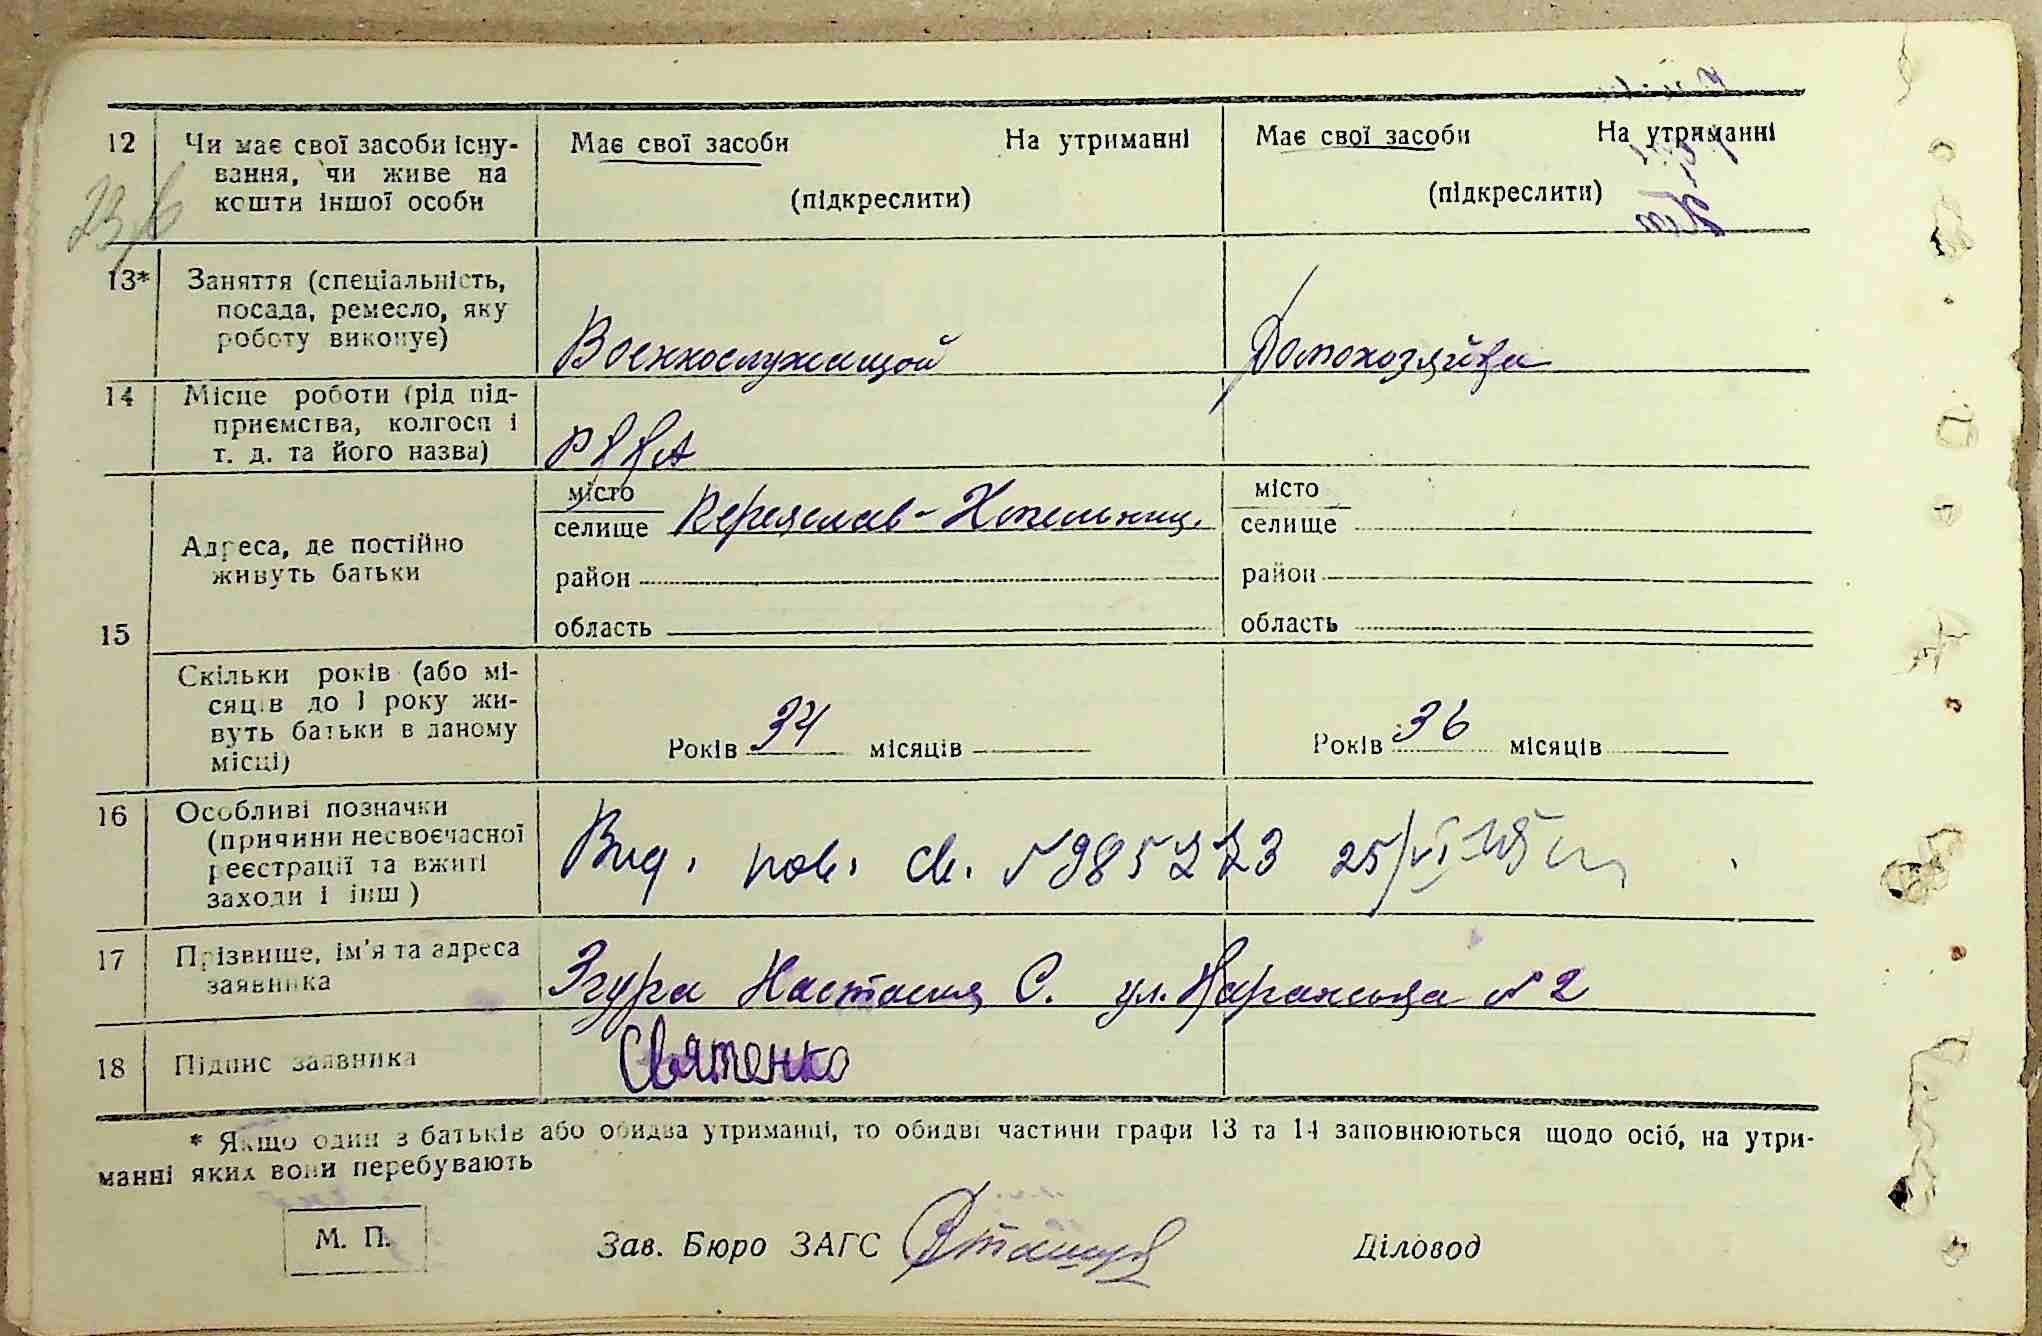 12 Чи має свої засоби існу-
вання, чи живе на
кошти іншої особи
Має свої засоби На утриманні
(підкреслити)
Має свої засоби На утриманні
(підкреслити)
13* Заняття (спеціальність,
посада, ремесло, яку
роботу виконує)
Военнослужащой
Домохозяйка
14 Місце роботи (рід під-
приємства, колгосп і
т. д. та його назва)
РККА
15 Адреса, де постійно
живуть батьки
місто
селище Переяслав-Хмельниц.
район
область
місто
селище
район
область
Скільки років (або мі-
сяців до 1 року жи-
вуть батьки в даному
місці)
Років 34 місяців
Років 36 місяців
16 Особливі позначки
(причини несвоєчасної
реєстрації та вжиті
заходи і інш)
Вид. пов. св. №985273 25/VI
17 Прізвище, ім'я та адреса
заявника
Згура Настасия С. ул. №2
18 Підпис заявника
Святенко
* Якщо один з батьків або обидва утриманці, то обидві частини графи 13 та 14 заповнюються щодо осіб, на утри-
манні яких вони перебувають
М. П.
Зав. Бюро ЗАГС
Діловод